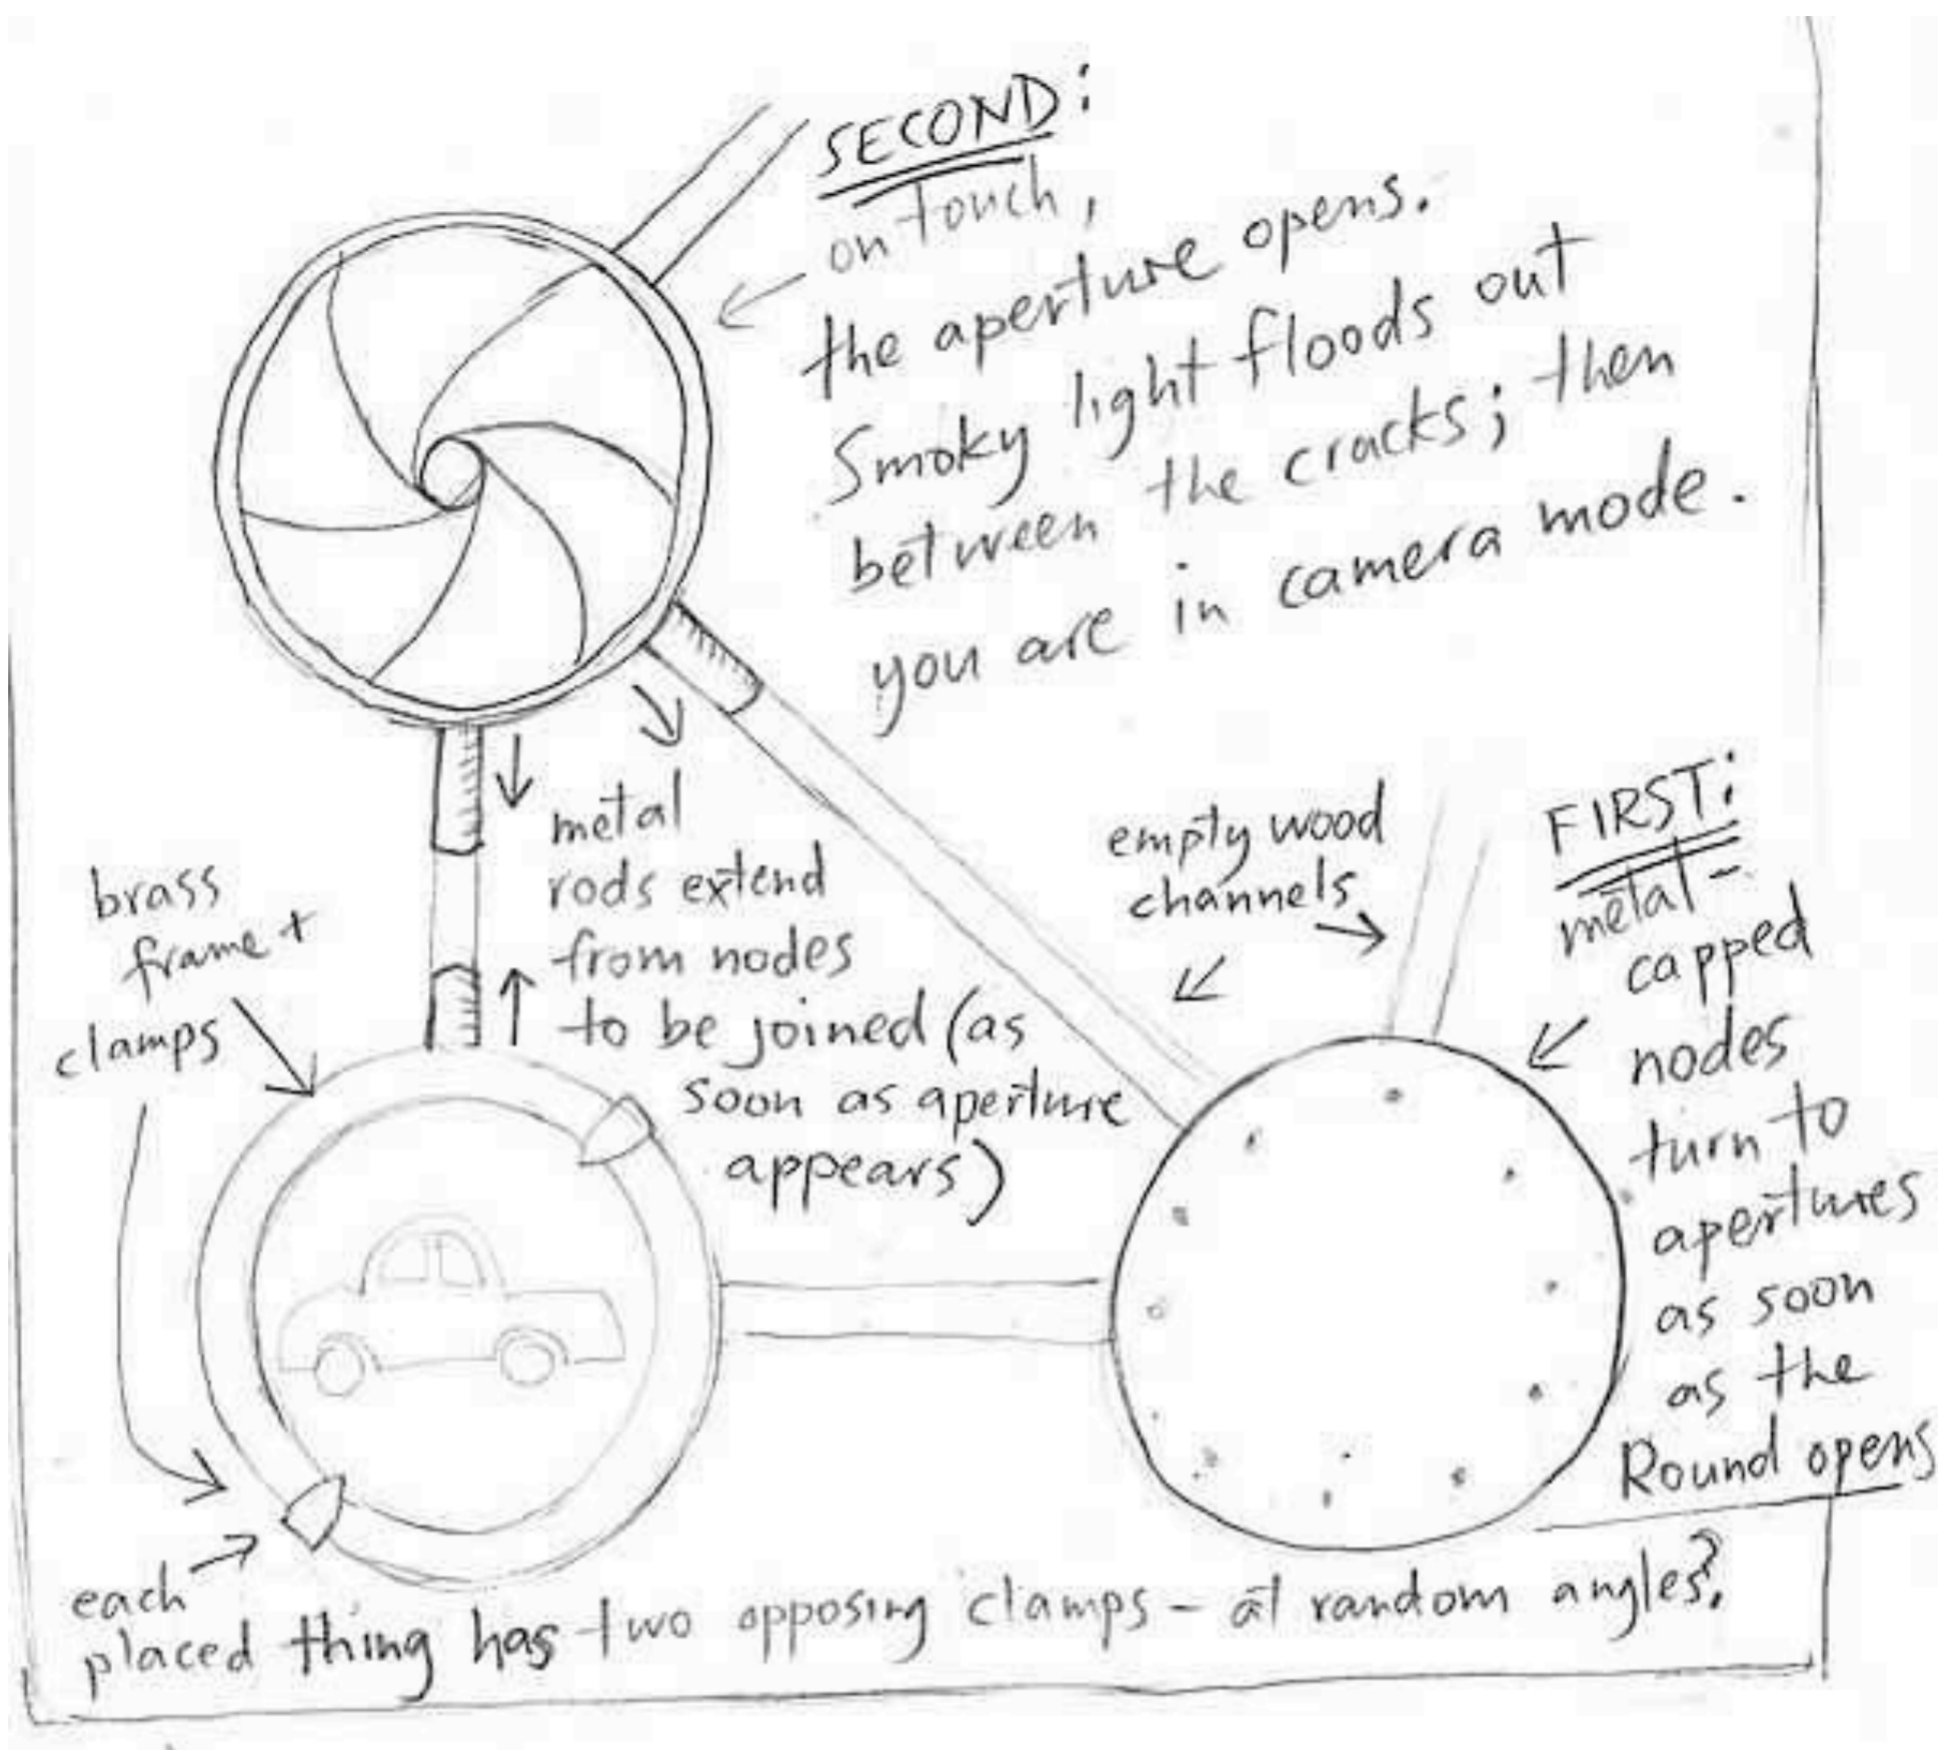 SECOND:
on touch,
the aperture opens.
Smoky light floods out
between the cracks; then
you are in camera mode.
metal
rods extend
from nodes
to be joined (as
soon as aperture
appears)
empty wood
channels
FIRST:
metal-
capped
nodes
turn to
apertures
as soon
as the
Round opens
brass
frame +
clamps
each
placed thing has two opposing clamps - at random angles?